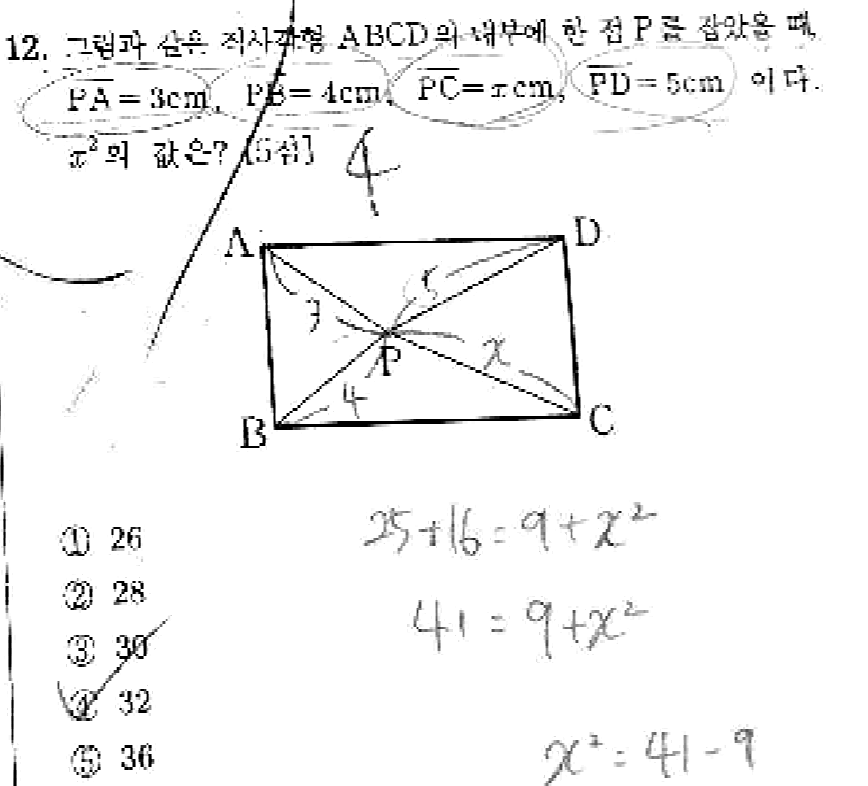 12. 그림과 같은 직사각형 ABCD의 내부에 한 점 P를 잡았을 때,
PA = 3cm, PB = 4cm, PC = xcm, PD = 5cm 이다.
x²의 값은? [5점]
4
A
D
5
3
P
x
4
B
C
25+16=9+x²
① 26
② 28
41=9+x²
③ 30
④ 32
⑤ 36
x²=41-9